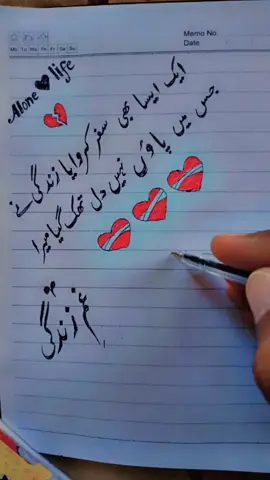 Memo No
Date
Mo Tu We Th Fr Sa Su
Alone life
ایک ایسا بھی سفر کروایا زندگی نے
جس میں پاؤں نہیں دل تھک گیا میرا
غم زندگی